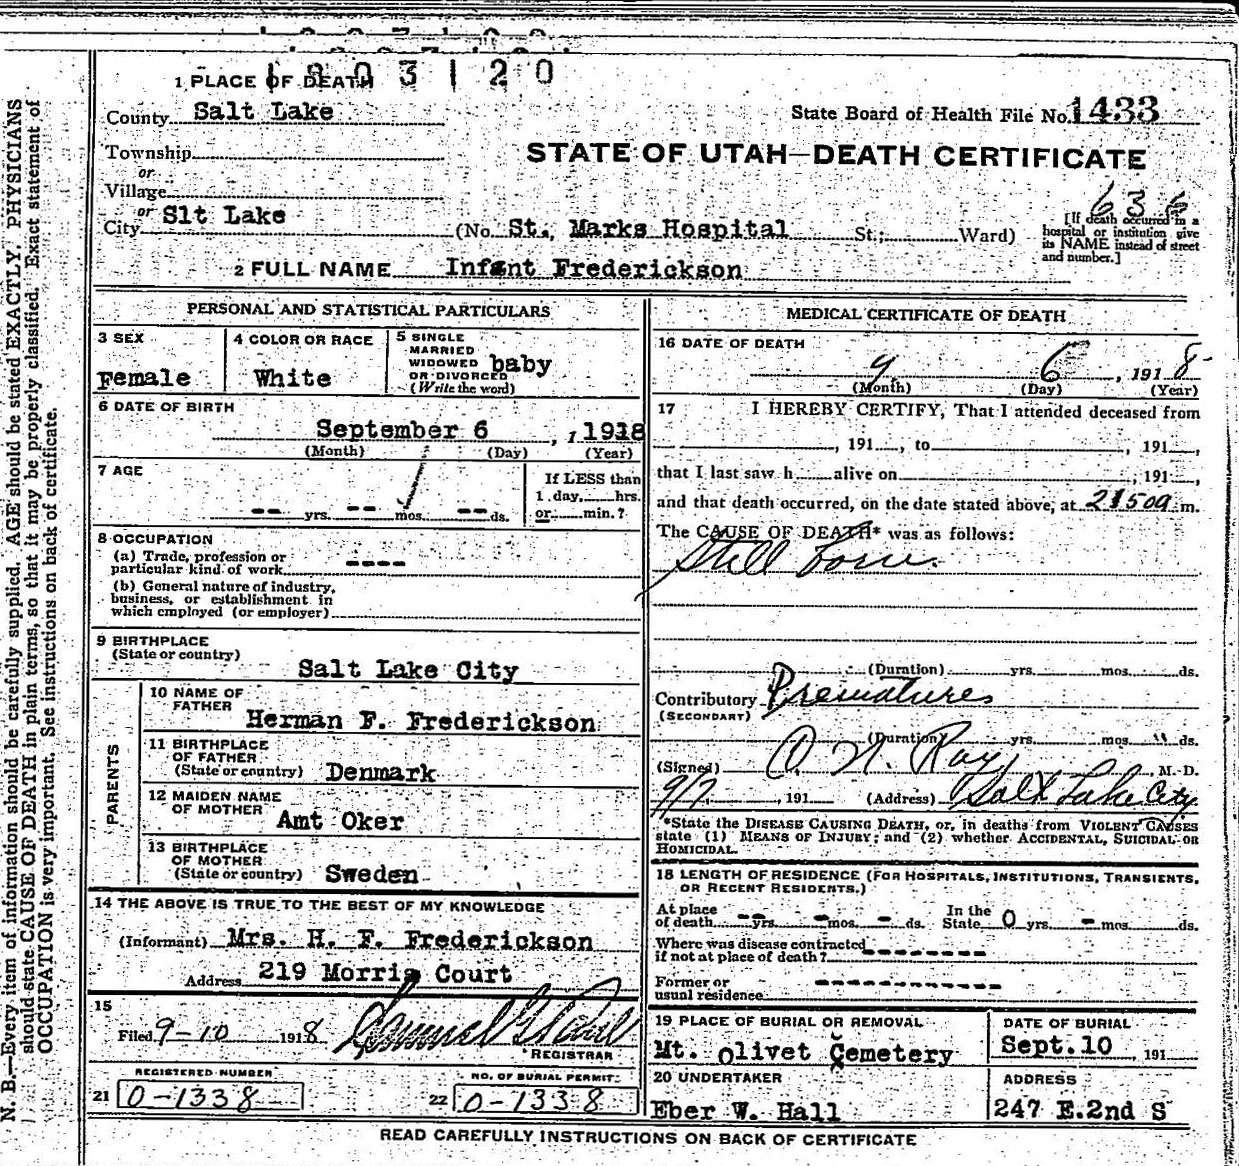 1 8 0 3 1 2 0
1 PLACE OF DEATH
County Salt Lake
State Board of Health File No. 1433
Township
or
Village
or
City Slt Lake
STATE OF UTAH—DEATH CERTIFICATE
636
(No. St. Marks Hospital St.; Ward)
[If death occurred in a
hospital or institution give
its NAME instead of street
and number.]
2 FULL NAME Infant Frederickson
PERSONAL AND STATISTICAL PARTICULARS
3 SEX
Female
4 COLOR OR RACE
White
5 SINGLE
MARRIED
WIDOWED
OR DIVORCED
(Write the word)
baby
6 DATE OF BIRTH
September 6, 1 1918
(Month) (Day) (Year)
7 AGE
-- yrs. -- mos. -- ds.
If LESS than
1 day, hrs.
or min.?
8 OCCUPATION
(a) Trade, profession or
particular kind of work ----
(b) General nature of industry,
business, or establishment in
which employed (or employer)
9 BIRTHPLACE
(State or country)
Salt Lake City
PARENTS
10 NAME OF
FATHER
Herman F. Frederickson
11 BIRTHPLACE
OF FATHER
(State or country) Denmark
12 MAIDEN NAME
OF MOTHER
Amt Oker
13 BIRTHPLACE
OF MOTHER
(State or country) Sweden
14 THE ABOVE IS TRUE TO THE BEST OF MY KNOWLEDGE
(Informant) Mrs. H. F. Frederickson
Address 219 Morris Court
15
Filed 9-10 1918
REGISTRAR
REGISTERED NUMBER
21 0-1338
NO. OF BURIAL PERMIT
22 0-1338
MEDICAL CERTIFICATE OF DEATH
16 DATE OF DEATH
9 6, 1918
(Month) (Day) (Year)
17 I HEREBY CERTIFY, That I attended deceased from
, 191 , to , 191 ,
that I last saw h alive on , 191 ,
and that death occurred, on the date stated above, at m.
The CAUSE OF DEATH* was as follows:
Still born.
(Duration) yrs. mos. ds.
Contributory Prematures
(SECONDARY)
(Duration) yrs. mos. " ds.
(Signed) O. N. Ray, M. D.
9/7, 191 (Address) Salt Lake City
*State the DISEASE CAUSING DEATH, or, in deaths from VIOLENT CAUSES
state (1) MEANS OF INJURY; and (2) whether ACCIDENTAL, SUICIDAL OR
HOMICIDAL.
18 LENGTH OF RESIDENCE (FOR HOSPITALS, INSTITUTIONS, TRANSIENTS,
OR RECENT RESIDENTS.)
At place
of death -- yrs. - mos. - ds.
In the
State 0 yrs. - mos. ds.
Where was disease contracted
if not at place of death? --------
Former or
usual residence ------------
19 PLACE OF BURIAL OR REMOVAL
Mt. Olivet Cemetery
DATE OF BURIAL
Sept. 10, 191
20 UNDERTAKER
Eber W. Hall
ADDRESS
247 E.2nd S
READ CAREFULLY INSTRUCTIONS ON BACK OF CERTIFICATE
N. B.—Every item of information should be carefully supplied. AGE should be stated EXACTLY. PHYSICIANS
should state CAUSE OF DEATH in plain terms, so that it may be properly classified. Exact statement of
OCCUPATION is very important. See instructions on back of certificate.